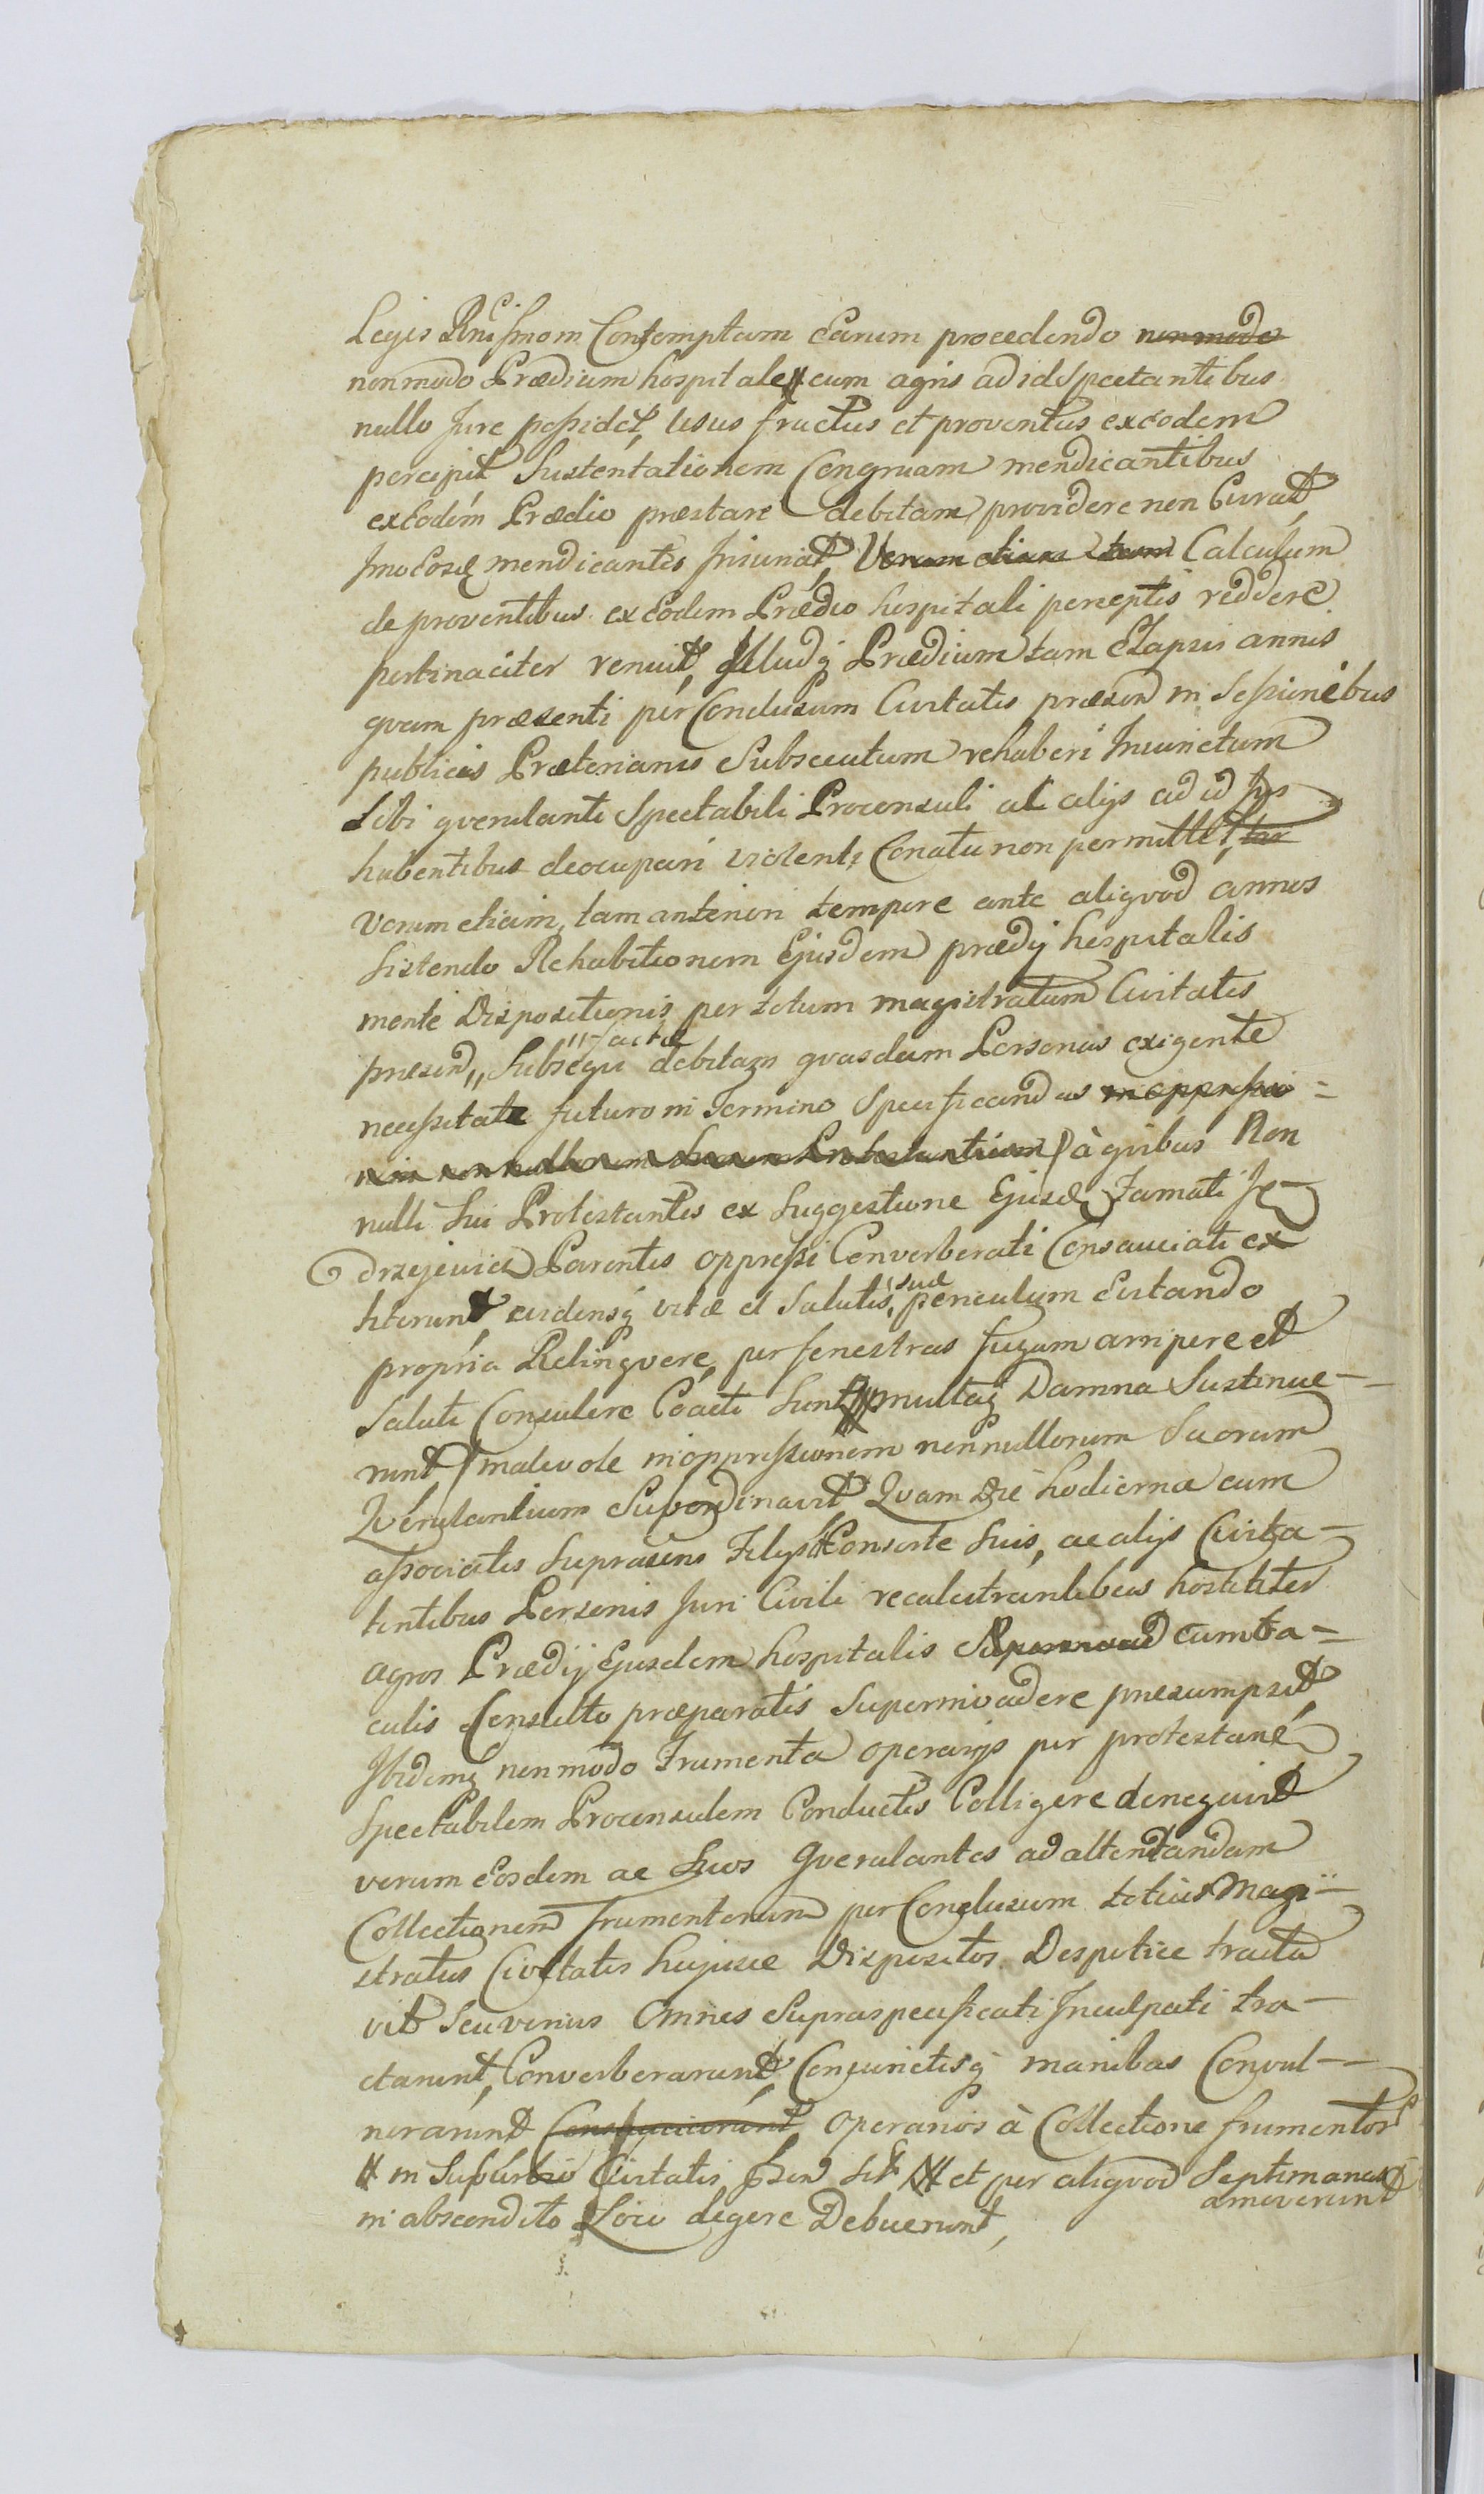 Legis Contemptum Earum procedendo non modo
non modo Prædium hospitale cum agris ad id Spectantibus
nullo Jure possidet, usus fructus et proventus ex eodem
percipit Sustentationem Congruam mendicantibus
ex Eodem Prædio præstare debitam providere non Curat,
Imo Eosd mendicantes Verum etiam tam Calculum
de proventibus ex Eodem Prædio hospitali perceptis reddere
pertinaciter renuit, Illudq Prædium tam Elapsis annis
qvam præsenti per Conclusum Civitatis præsen in Sessionibus
publicis Prætorianis Subsecutum rehaberi Injunctum
Sibi qverulanti Spectabili Proconsuli at alijs ad id Jus
habentibus deocupari violento Conatu non permittet,
Verum etiam, tam anteriori tempore ante aliqvod annos
Sistendo Rehabitionem Ejusdem prædij hospitalis
mente Dispositionis per totum magistratum Civitatis
præsen,, Subseqvi ,,factæ debitam qvasdam Personas exigente
necessitate futuro in Termino Specificandas in oppressio=
nem non nullorum Suorum Protestantium à qvibus Non
nulli Sui Protestantes ex Suggestione Ejusd Famati Je-
drzejewicz Parentis oppressi Converberati Consauciati ex
titerunt evidensq vitæ et Salutis, suæ periculum Evitando
propria Relinqvere, per fenestras fugam arripere et
Saluti Consulere Coacti Sunt multaq Damna Sustinue-
runt malevole in oppressionem non nullorum Suorum
Qverulantium Subordinavit Qvam Die hodierna cum
associatis Suprasens Filijs Consorte Suis, ac alijs Civita-
tentibus Personis Juri Civili recalcitrantibus hostiliter
agros Prædij Ejusdem hospitalis cum ba=
culis Consulto præparatis Supermivadere præsumpsit
Ibidemq non modo Frumenta operarijs per protestané
Spectabilem Proconsulem Conductis Colligere denegavit
verum Eosdem ac Suos Qverulantes ad attendandam
Collectionem frumentorum per Conclusum totius Magi-
stratus Civitatis hujusce Dispositos Despotice tracta
vit Seu verius Omnes Supraspecificati Inculpati tra-
ctarunt, Converberarunt, Conjunctisq manibus Convul-
nerarunt Operarios à Collectione frumentor
in Suburbio Civitatis et per aliqvod Septimanas
amoverunt
in abscondito Loco degere Debuerunt,